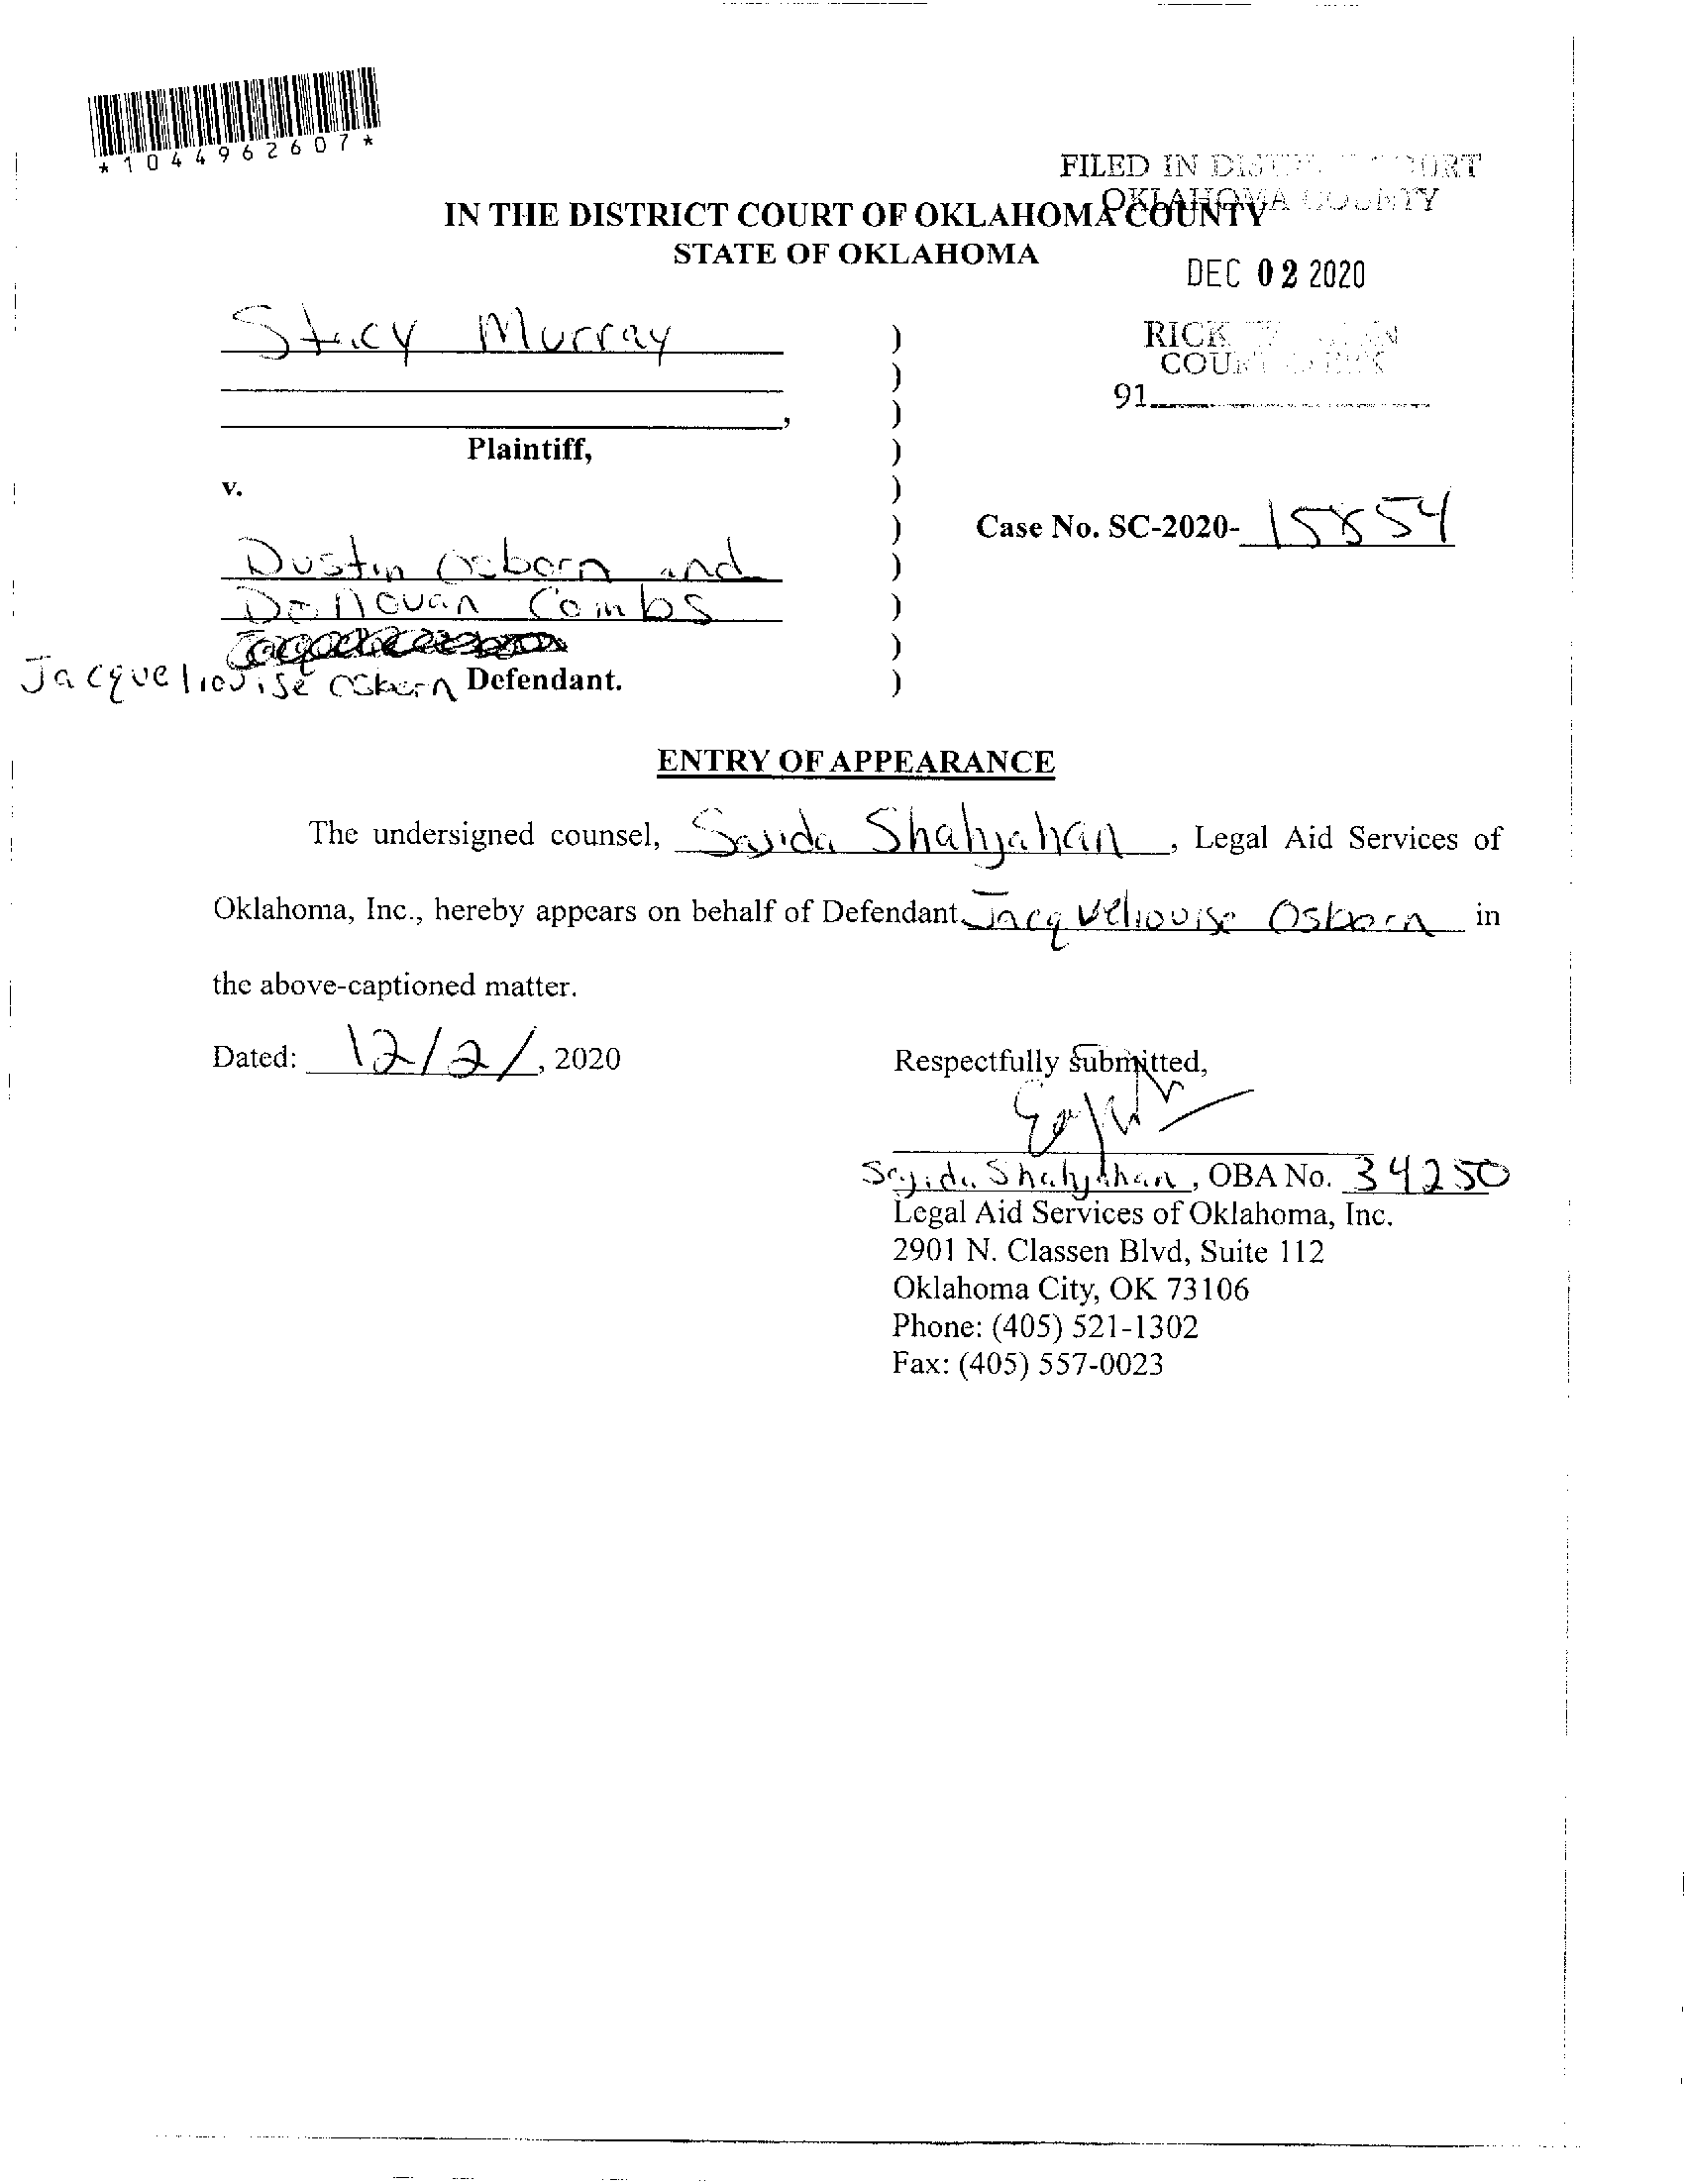 *1044962607*
FILED IN
OKLAHOMA COUNTY
IN THE DISTRICT COURT OF OKLAHOMA COUNTY
STATE OF OKLAHOMA
DEC 02 2020
Stacy Murray
RICK
COURT CLERK
91
Plaintiff,
v.
Case No. SC-2020- 15854
Dustin Osborn and
Donovan Combs
Jacqueliouise Osborn Defendant.
ENTRY OF APPEARANCE
The undersigned counsel, Sajida Shahjahan, Legal Aid Services of
Oklahoma, Inc., hereby appears on behalf of Defendant Jacqueliouise Osborn in
the above-captioned matter.
Dated: 12/2/, 2020
Respectfully submitted,
Sajida Shahjahan, OBA No. 34250
Legal Aid Services of Oklahoma, Inc.
2901 N. Classen Blvd, Suite 112
Oklahoma City, OK 73106
Phone: (405) 521-1302
Fax: (405) 557-0023